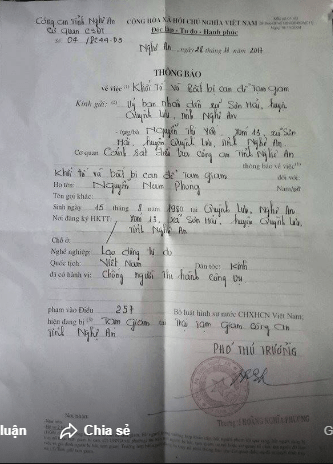 Công an Tỉnh Nghệ An
Cơ quan CSĐT
Số: 04 /PC44-Đ3
CỘNG HÒA XÃ HỘI CHỦ NGHĨA VIỆT NAM
Độc lập - Tự do - Hạnh phúc
Nghệ An, ngày 28 - 11 2017
THÔNG BÁO
về việc Khởi Tố và Bắt bị can để Tạm Giam
Kính gửi: Uỷ ban nhân dân xã Sơn Hải, huyện
Quỳnh Lưu, tỉnh Nghệ An
Nguyễn Thị Yến xóm 13, xã Sơn
Hải, huyện Quỳnh Lưu, Tỉnh Nghệ An
Cơ quan Cảnh sát điều tra Công an Tỉnh Nghệ An
thông báo về việc
Khởi tố và bắt bị can để Tạm giam đối với:
Họ tên: Nguyễn Nam Phong Nam/nữ
Tên gọi khác:
Sinh ngày 15 tháng 8 1980 tại Quỳnh Lưu, Nghệ An
Nơi đăng ký HKTT: Xóm 13, xã Sơn Hải, huyện Quỳnh Lưu,
Tỉnh Nghệ An
Chỗ ở:
Nghề nghiệp: Lao động tự do
Quốc tịch: Việt Nam Dân tộc: Kinh
đã có hành vi: Chống người thi hành công vụ
phạm vào Điều 257 Bộ luật hình sự nước CHXHCN Việt Nam;
hiện đang bị Tạm Giam tại Trại Tạm Giam Công an
tỉnh Nghệ An
PHÓ THỦ TRƯỞNG
luận
Chia sẻ